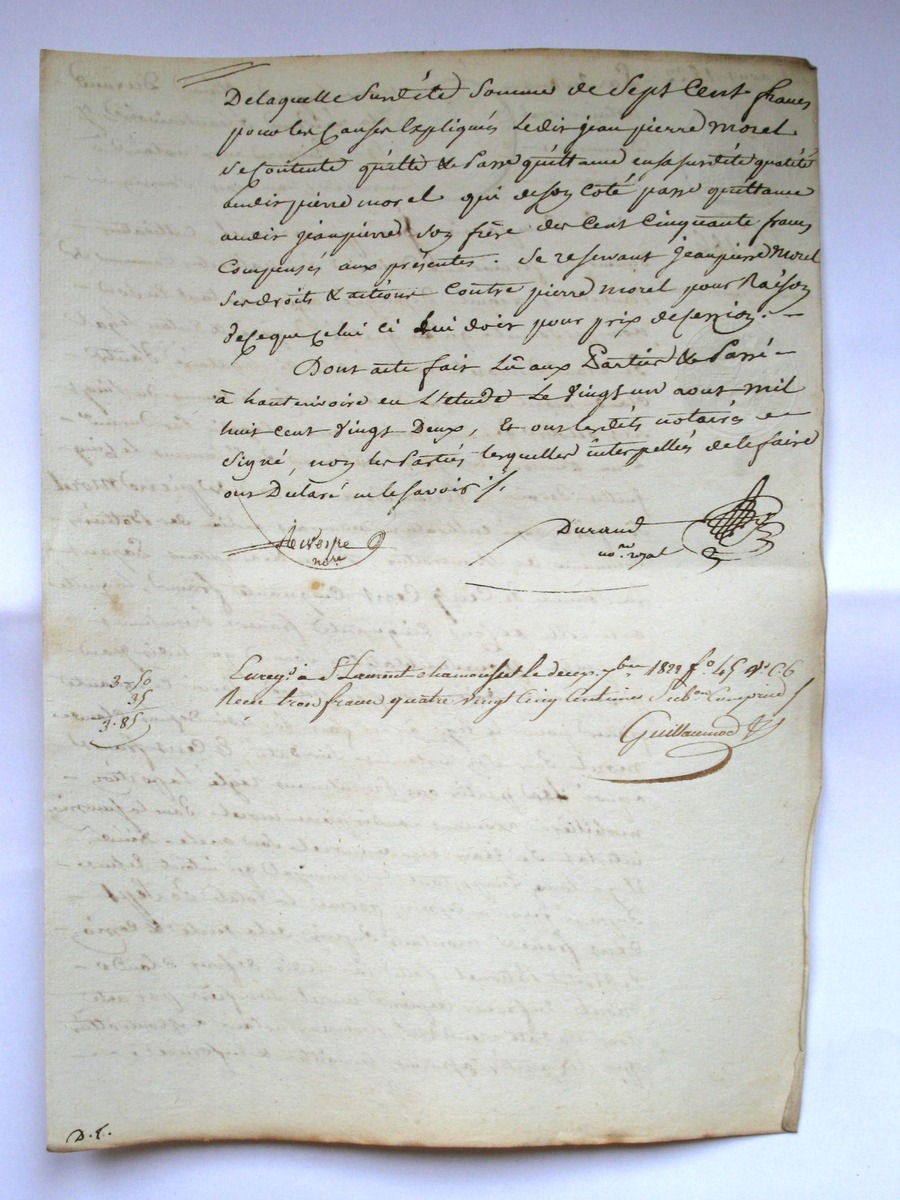 De laquelle surdite somme de Sept Cent francs
pour les Causes Expliqués ledit jean pierre Morel
se Contente quitte & Passe quittance en sa surdite qualité
audit pierre morel qui de son Coté passe quittance
audit jeanpierre son frère des Cent Cinquante francs
Compensés aux présentes. Se reservant jeanpierre Morel
ses droits & actions Contre pierre morel pour Raison
de ce que Celui Ci lui doit pour prix de Cession. —
Dont acte fait Lû aux Parties & Passé —
à hauterivoire en L'etude Le Vingt un aout mil
huit cent Vingt Deux, Et ont lesdits notaires
Signé, non les Parties lesquelles interpellés de le faire
ont Declaré ne le Savoir
Durand
no.re royal
n.re
Enreg.é à St Laurent chamousset le deux 7bre 1822 f.o 45 v.o C. 6
Recu trois francs quatre vingt Cinq Centimes Sub.on Comprise
Guillaumod
3-50
35
3.85
D. L.